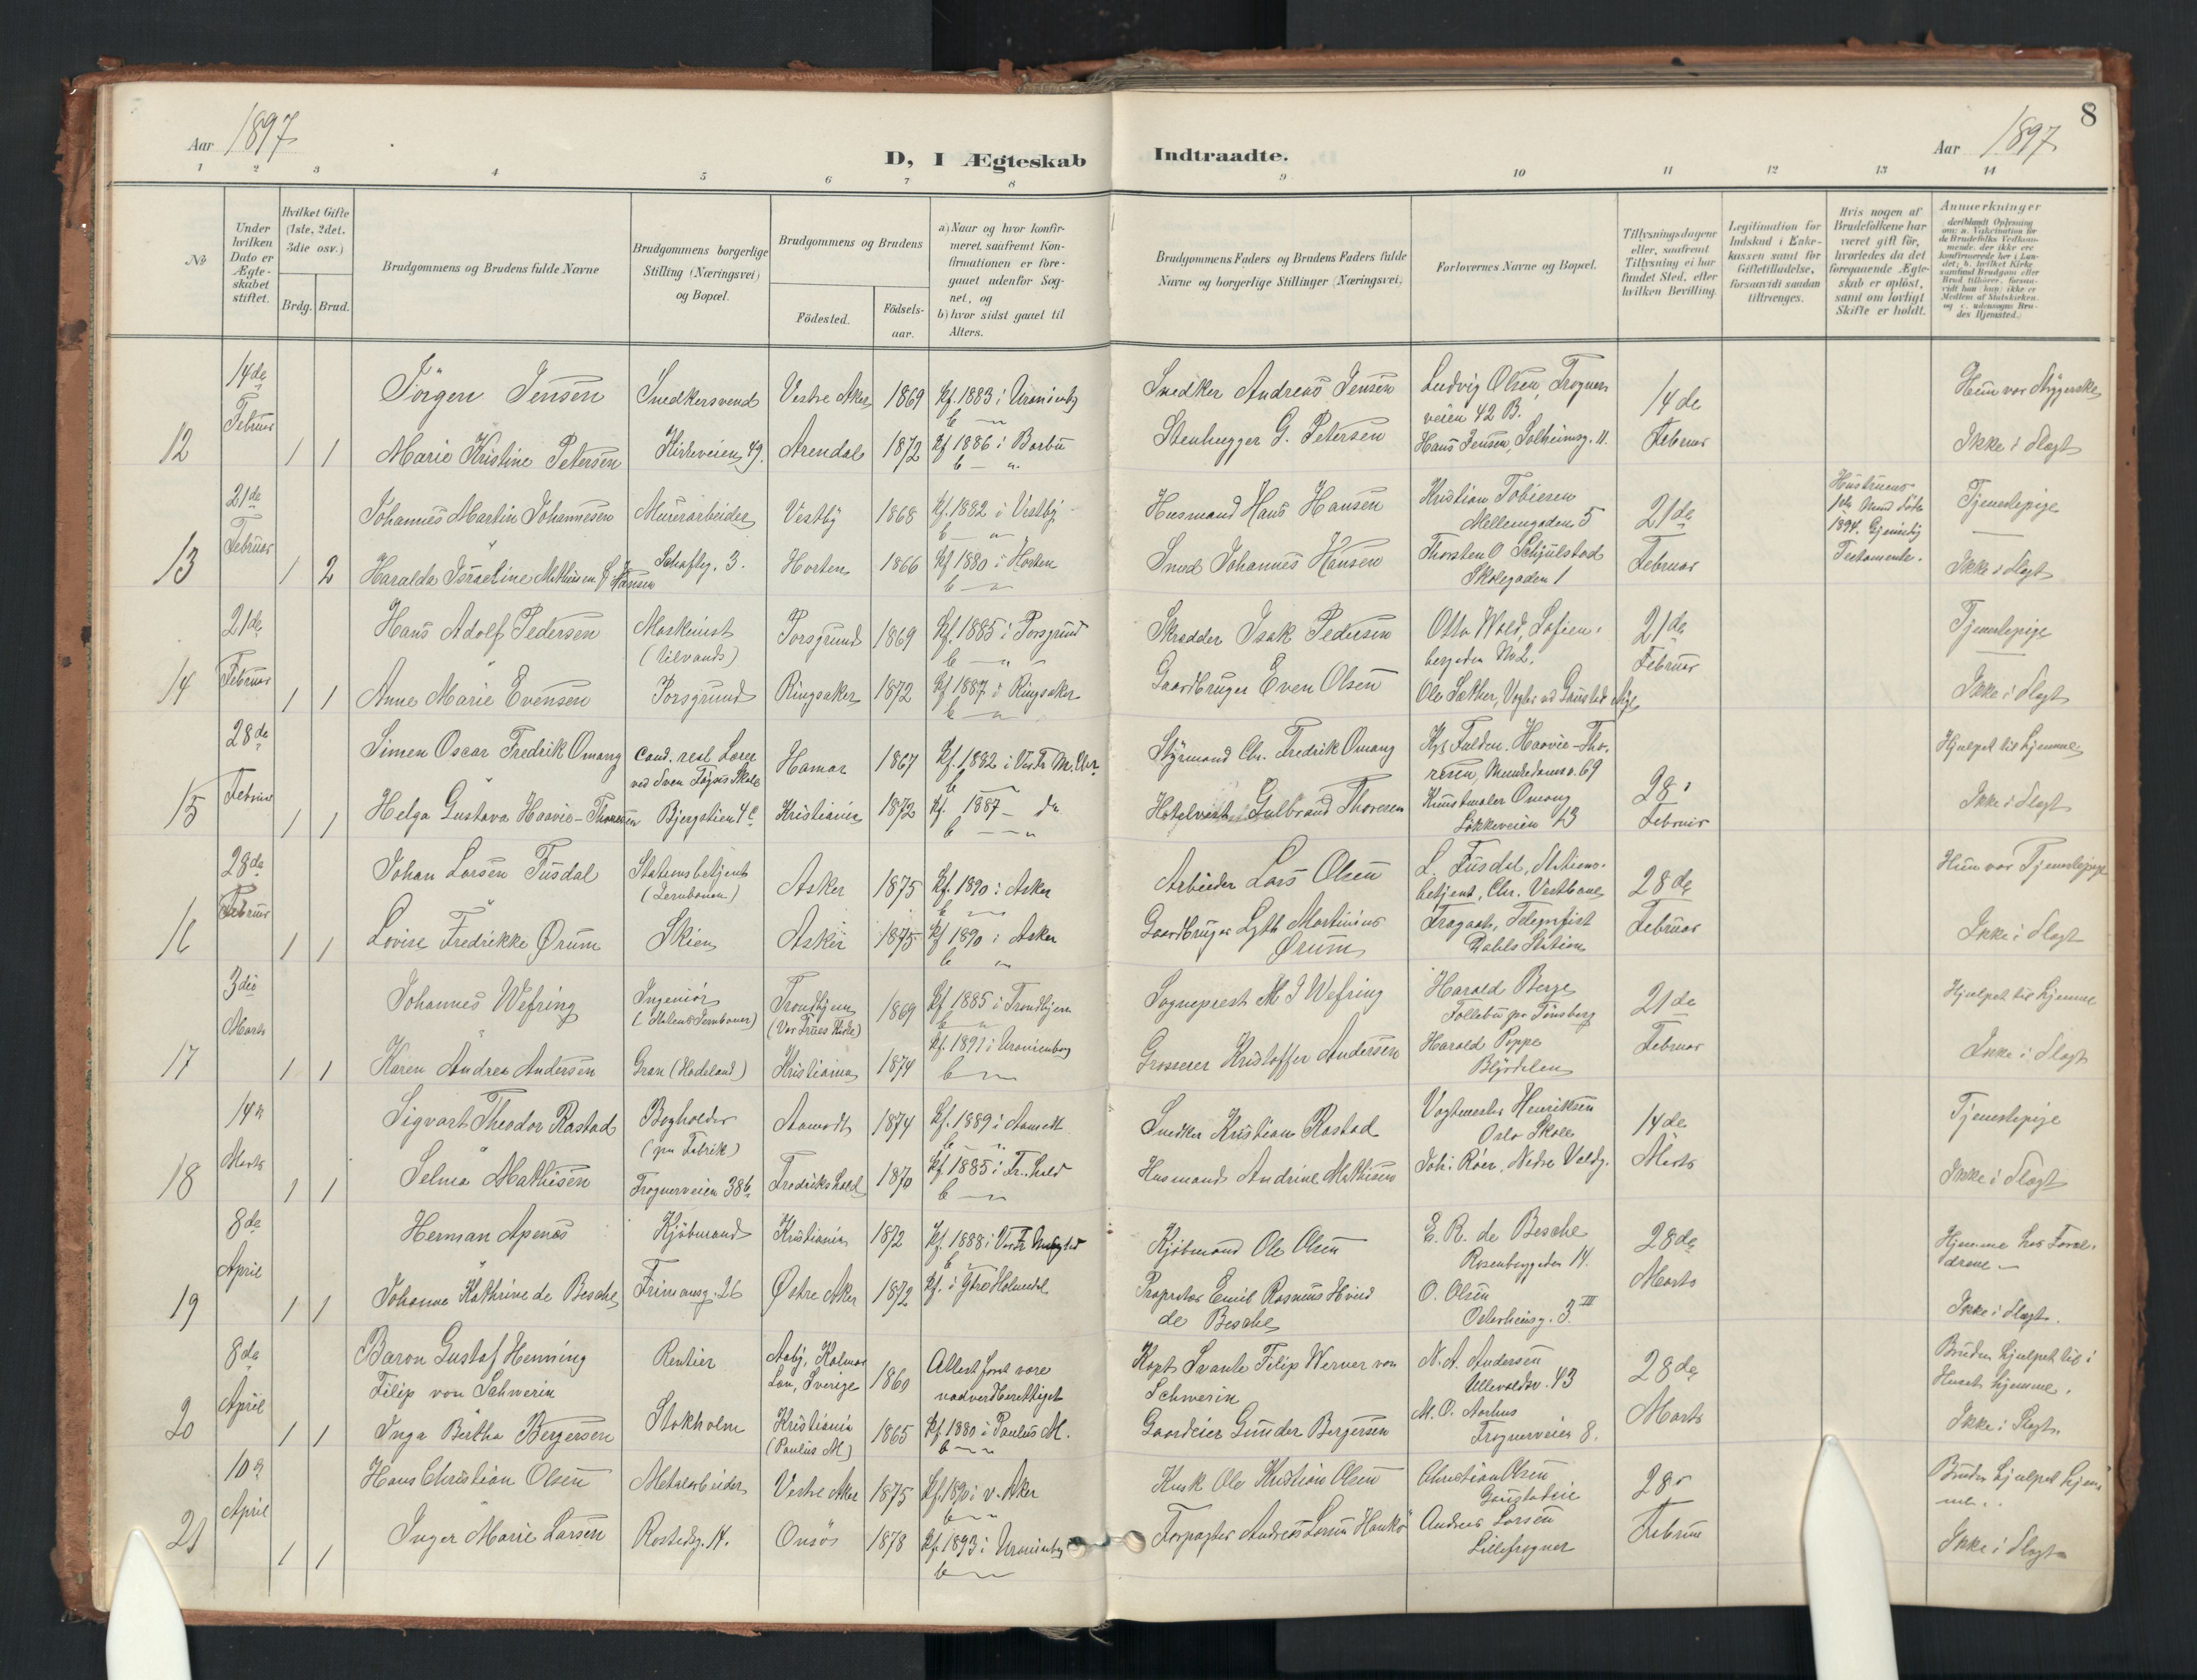 8
Aar 1897
D, I Ægteskab Indtraadte.
Aar 1897
1 2 3 4 5 6 7 8 9 10 11 12 13 14
No
Under hvilken Dato er Ægteskabet stiftet.
Hvilket Gifte (1ste, 2det, 3die osv.)
Brdg. Brud.
Brudgommens og Brudens fulde Navne
Brudgommens borgerlige Stilling (Næringsvei) og Bopæl.
Brudgommens og Brudens
Födested.
Födsels-aar.
a) Naar og hvor konfirmeret, saafremt Konfirmationen er foregaaet udenfor Sognet, og
b) hvor sidst gaaet til Alters.
Brudgommens Faders og Brudens Faders fulde Navne og borgerlige Stillinger (Næringsvei)
Forlovernes Navne og Bopæl.
Tillysningsdagene eller, saafremt Tillysning ei har fundet Sted, efter hvilken Bevilling.
Legitimation for Indskud i Enkekassen samt for Giftetilladelse, forsaavidt saadan tiltrænges.
Hvis nogen af Brudefolkene har været gift för, hvorledes da det foregaaende Ægteskab er oplöst, samt om lovligt Skifte er holdt.
Anmærkninger
12
14de Februar
1 1
Jörgen Jensen
Snedkersvend
Vestre Aker 1869 Kf. 1883 i Uranienb
Snedker Andreas Jensen
Ludvig Olsen, Frogner
veien 42 B.
14de Februar
Marie Kristine Petersen
Kirkeveien 49.
Arendal 1872 Kf 1886 i Barbu
Stenhugger G. Petersen
Hans Jensen, Solheimsg. 11.
Ikke i Slægt
13
21de Februar
1 2
Johannes Martin Johannesen
Murerarbeider
Vestby 1868 Kf. 1882 i Vestby
Husmand Hans Hansen
Kristian Tobiesen
Mellemgaden 5
21de Februar
Tjenestepige
Haralda Israeline Mathisen f. Hansen
3.
Horten 1866 Kf 1880 i Horten
Smed Johannes Hansen
Thorsten O Schjulstad
Skolegaden 1
1894.
Testamente.
Ikke i Slægt
14
21de Februar
1 1
Hans Adolf Pedersen
Maskinist
Porsgrund 1869 Kf. 1885 i Porsgrund
Skrædder Isak Pedersen
Otto Wold, Sofien-
berggaden No 2.
21de Februar
Tjenestepige
Anne Marie Evensen
Porsgrund
Ringsaker 1872 Kf 1887 i Ringsaker
Gaardbruger Even Olsen
Ole Sæther, Vogter ved Gaustad Asyl
Ikke i Slægt
15
28de Februar
1 1
Simen Oscar Fredrik Omang
Cand. real Lærer
Hamar 1867 Kf. 1882 i
Styrmand Chr. Fredrik Omang
Haavie-Tho-
resen, Munkedamsv. 69
28de Februar
Hjulpet til hjemme
Helga Gustava Haavie-Thoresen
Bjergstien 4c
Kristiania 1872 Kf. 1887 – do
Hotelvært Gulbrand Thoresen
Kunstmaler Omang
Lökkeveien 13
Ikke i Slægt
16
28de Februar
1 1
Johan Larsen Fusdal
Stationsbetjent
(Jernbanen)
Asker 1875 Kf. 1890 i Asker
Arbeider Lars Olsen
L. Fusdal, Stations-
betjent, Chr. Vestbane
28de Februar
Hun var Tjenestepige
Lovise Fredrikke Ørum
Skien
Asker 1875 Kf 1890 i Asker
Gaardbruger Martinius
Ørum
Telegrafist
Station
Ikke i Slægt
17
3die Marts
1 1
Johannes Wefring
Ingeniör
(Statens Jernbaner)
Trondhjem
(Vor Frues Kirke)
1869 Kf. 1885 i Trondhjem
Sogneprest M J Wefring
Harald Berge
pr. Tönsberg
21de Februar
Hjulpet til hjemme
Karen Andrea Andersen
Gran (Hadeland)
Kristiania 1874 Kf. 1891 i Uranienborg
Grosserer Kristoffer Andersen
Harald Poppe
Ikke i Slægt
18
14de Marts
1 1
Sigvart Theodor Rastad
Bogholder
(paa Fabrik)
Aamodt 1874 Kf. 1889 i Aamodt
Snedker Kristian Rastad
Vagtmester Henriksen
Oslo Skole
14de Marts
Tjenestepige
Selma Mathisen
Frognerveien 38b
Fredrikshald 1870 Kf 1885 i Fr.hald
Husmand Andrine Mathisen
Joh: Röer, Nedre Voldg.
Ikke i Slægt
19
8de April
1 1
Herman Apenes
Kjöbmand
Kristiania 1872 Kf. 1888 i
Kjöbmand Ole Olsen
E. R. de Besche
Rosenborggaden 14.
28de Marts
Hjemme hos Foræl-
drene –
Johanne Kathrine de Besche
26
Østre Aker 1872 Kf. i
Proprietær Emil Rasmus Hvid
de Besche
O. Olsen
3 III
Ikke i Slægt.
20
8de April
1 1
Baron Gustaf Henning
Filip von Schwerin
Rentier
Kalmar
Län, Sverige 1860
Attest for at være
nadverdberettiget
Kapt Svante Filip Werner von
Schwerin
N. A. Andersen
Ullevoldsv. 43
28de Marts
Bruden hjulpet til i
Huset hjemme.
Inga Bertha Bergersen
Stokholm
Kristiania
(Paulus M)
1865 Kf 1880 i Paulus M.
Gaardeier Gunder Bergersen
M. O. Aarhus
Frognerveien 8.
Ikke i Slægt.
21
10de April
1 1
Hans Christian Olsen
Metalarbeider
Vestre Aker 1875 Kf. 1890 i v. Aker
Kusk Ole Kristian Olsen
Christian Olsen
28de Februar
Bruden hjulpet hjem-
me.
Inger Marie Larsen
Rostedsg. 14.
Onsö 1878 Kf. 1893 i Uranienborg
Forpagter Andreas Larsen Hankö
Andreas Larsen
Lillefrogner
Ikke i Slægt